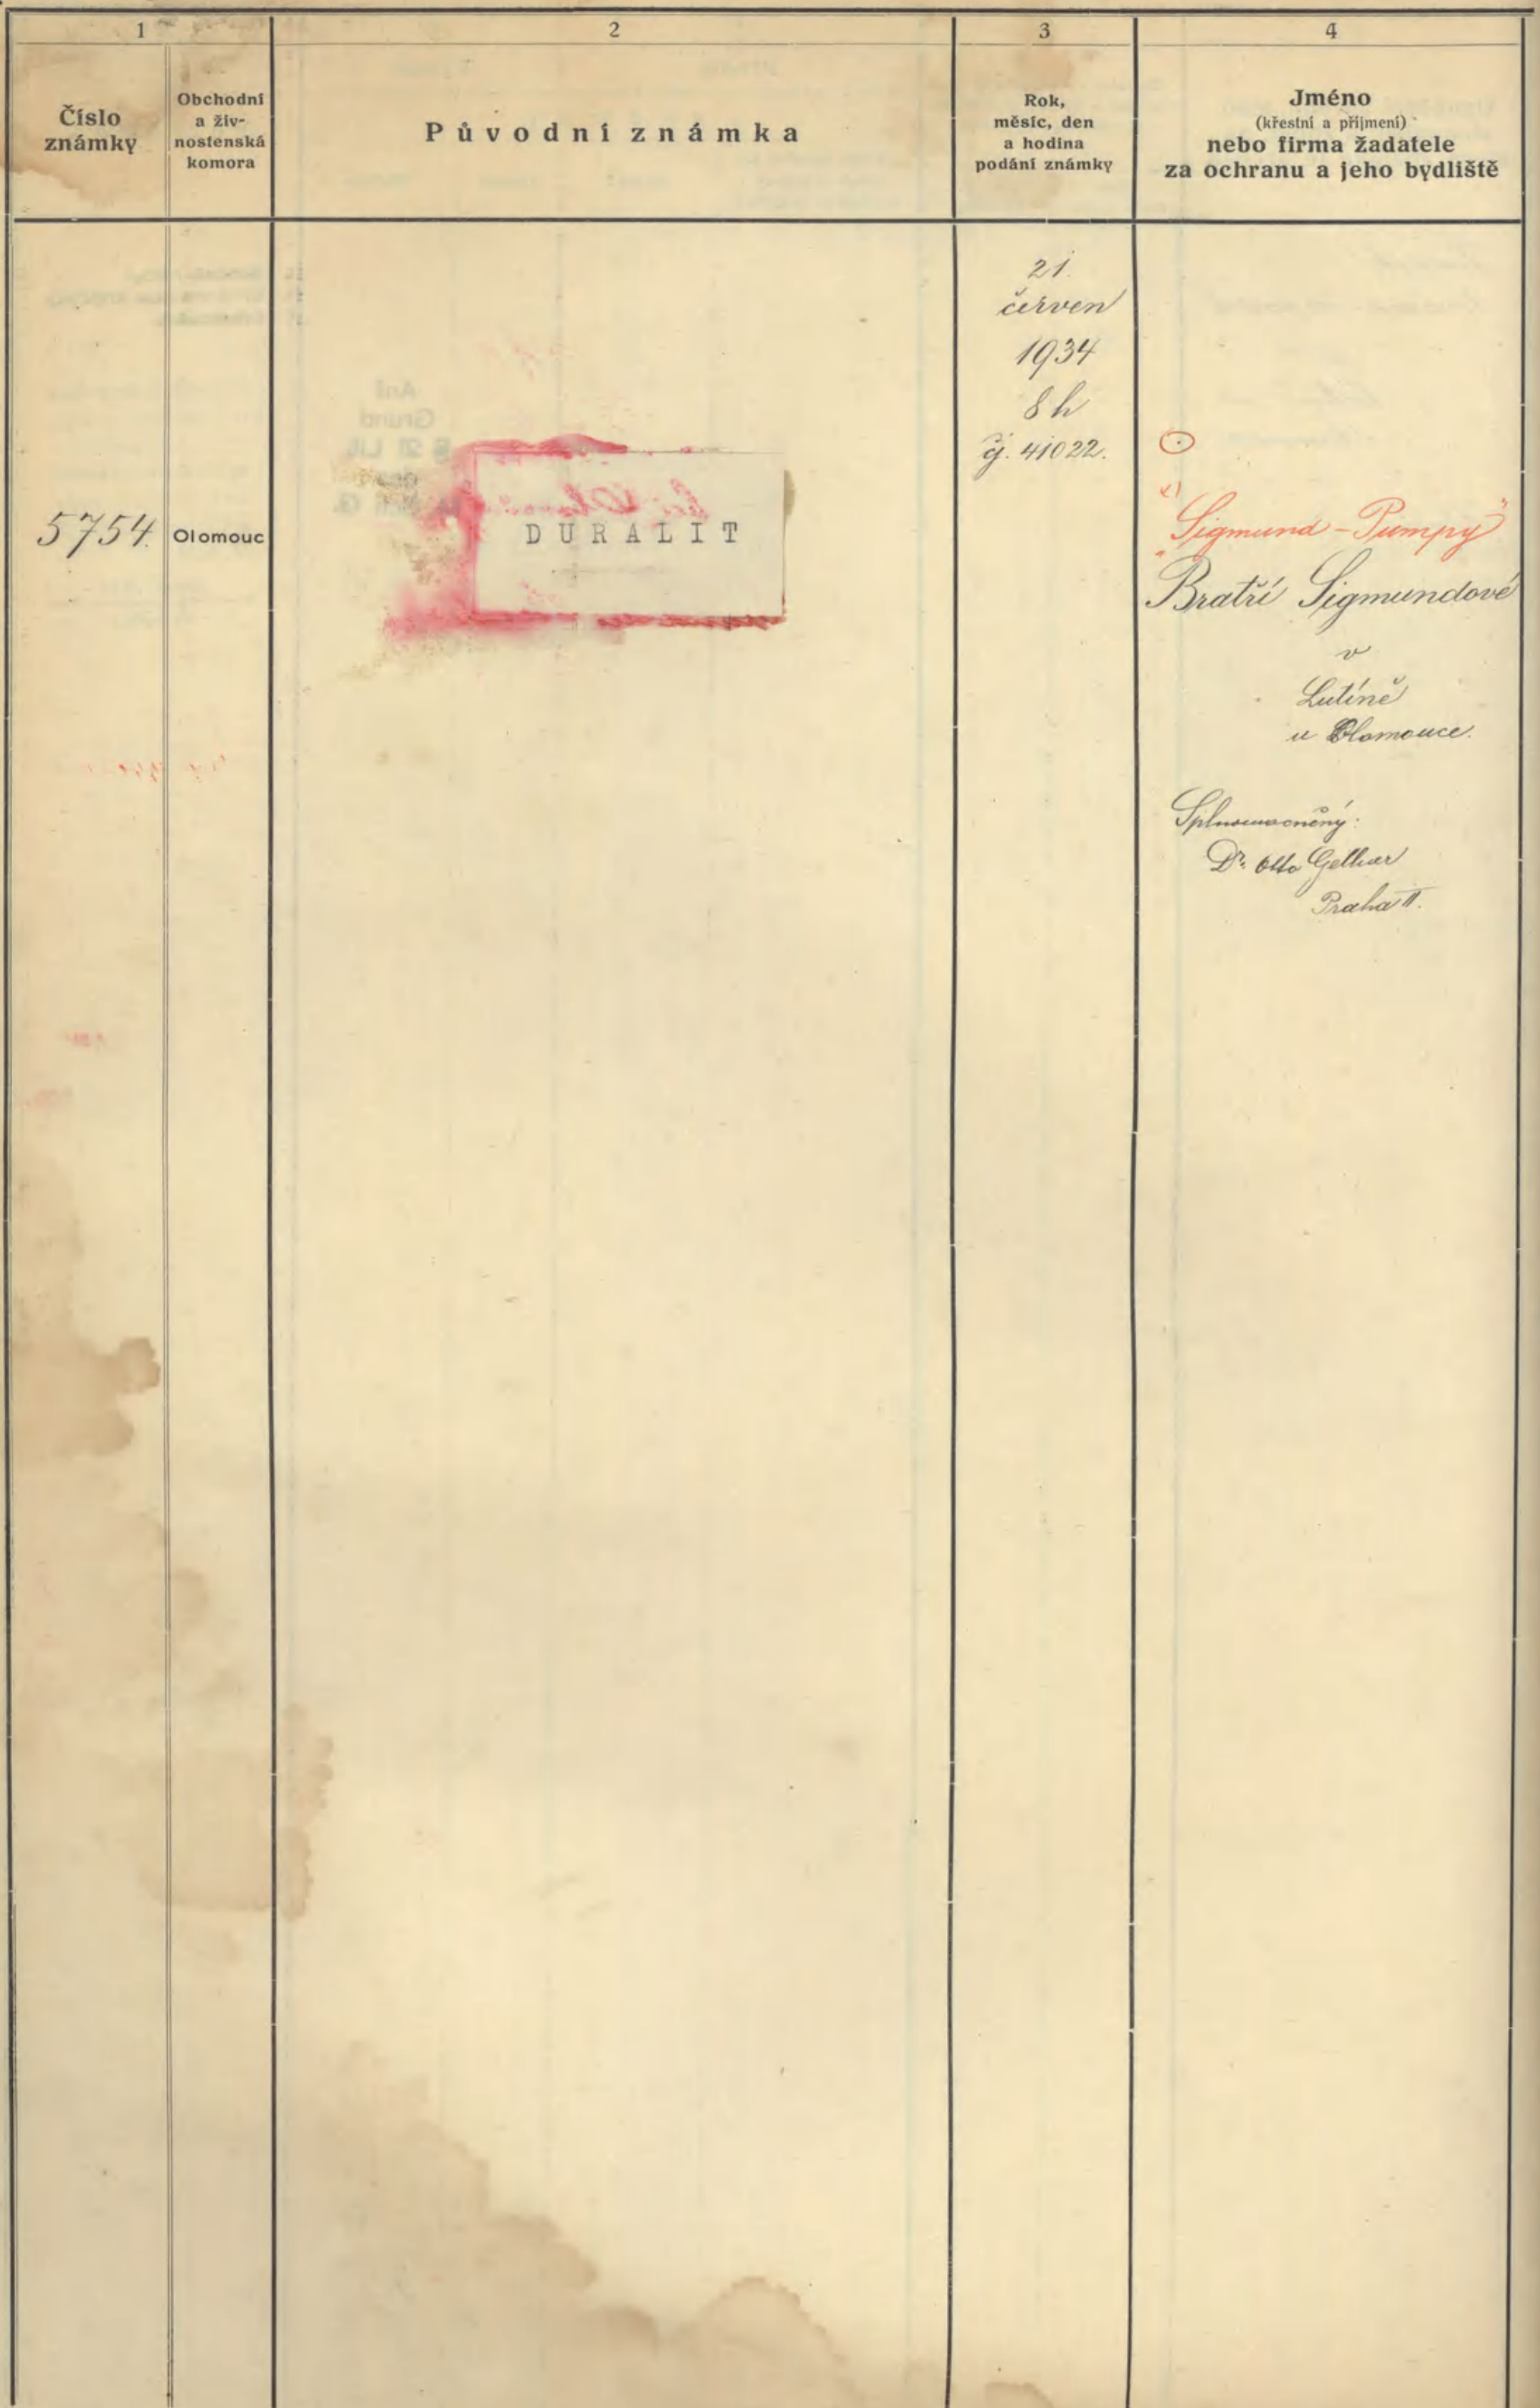 1
2
3
4
Číslo
známky
Obchodní
a živ-
nostenská
komora
Původní známka
Rok,
měsíc, den
a hodina
podání známky
Jméno
(křestní a příjmení)
nebo firma žadatele
za ochranu a jeho bydliště
21.
červen
1934
8 h
čj. 41022.
5754.
Olomouc
DURALIT
x)
"Sigmund - Pumpy"
Bratří Sigmundové
v
Lutíně
u Olomouce.
Splnomocněný:
Dr. Otto Gellner
Praha II.